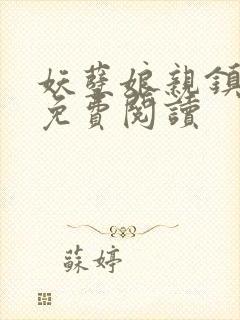 妖孽娘親鎮
免費閱讀
蘇婷